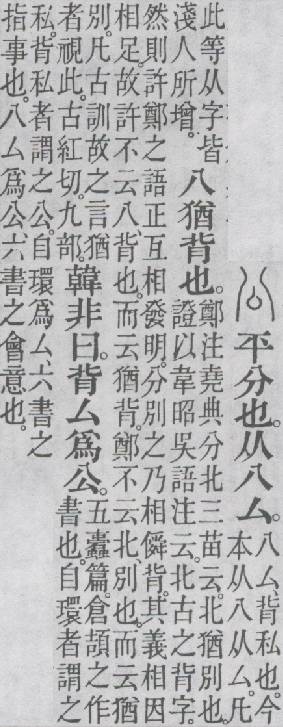 平分也。从八厶。
八厶、背私也。今
本从八从厶。凡
此等从字皆
淺人所增。
八猶背也。
鄭注堯典分北三苗云。北猶別也。
證以韋昭吳語注云。北古之背字。
然則許鄭之語正互相發明。分別之乃相僻背。其義相因
相足。故許不云八、背也。而云猶背。鄭不云北、別也。而云猶
別。凡古訓故之言猶
者視此。古紅切。九部。
韓非曰。背厶爲公。
五蠹篇。倉頡之作
書也。自環者謂之
私。背私者謂之公。自環爲厶、六書之
指事也。八厶爲公、六書之會意也。